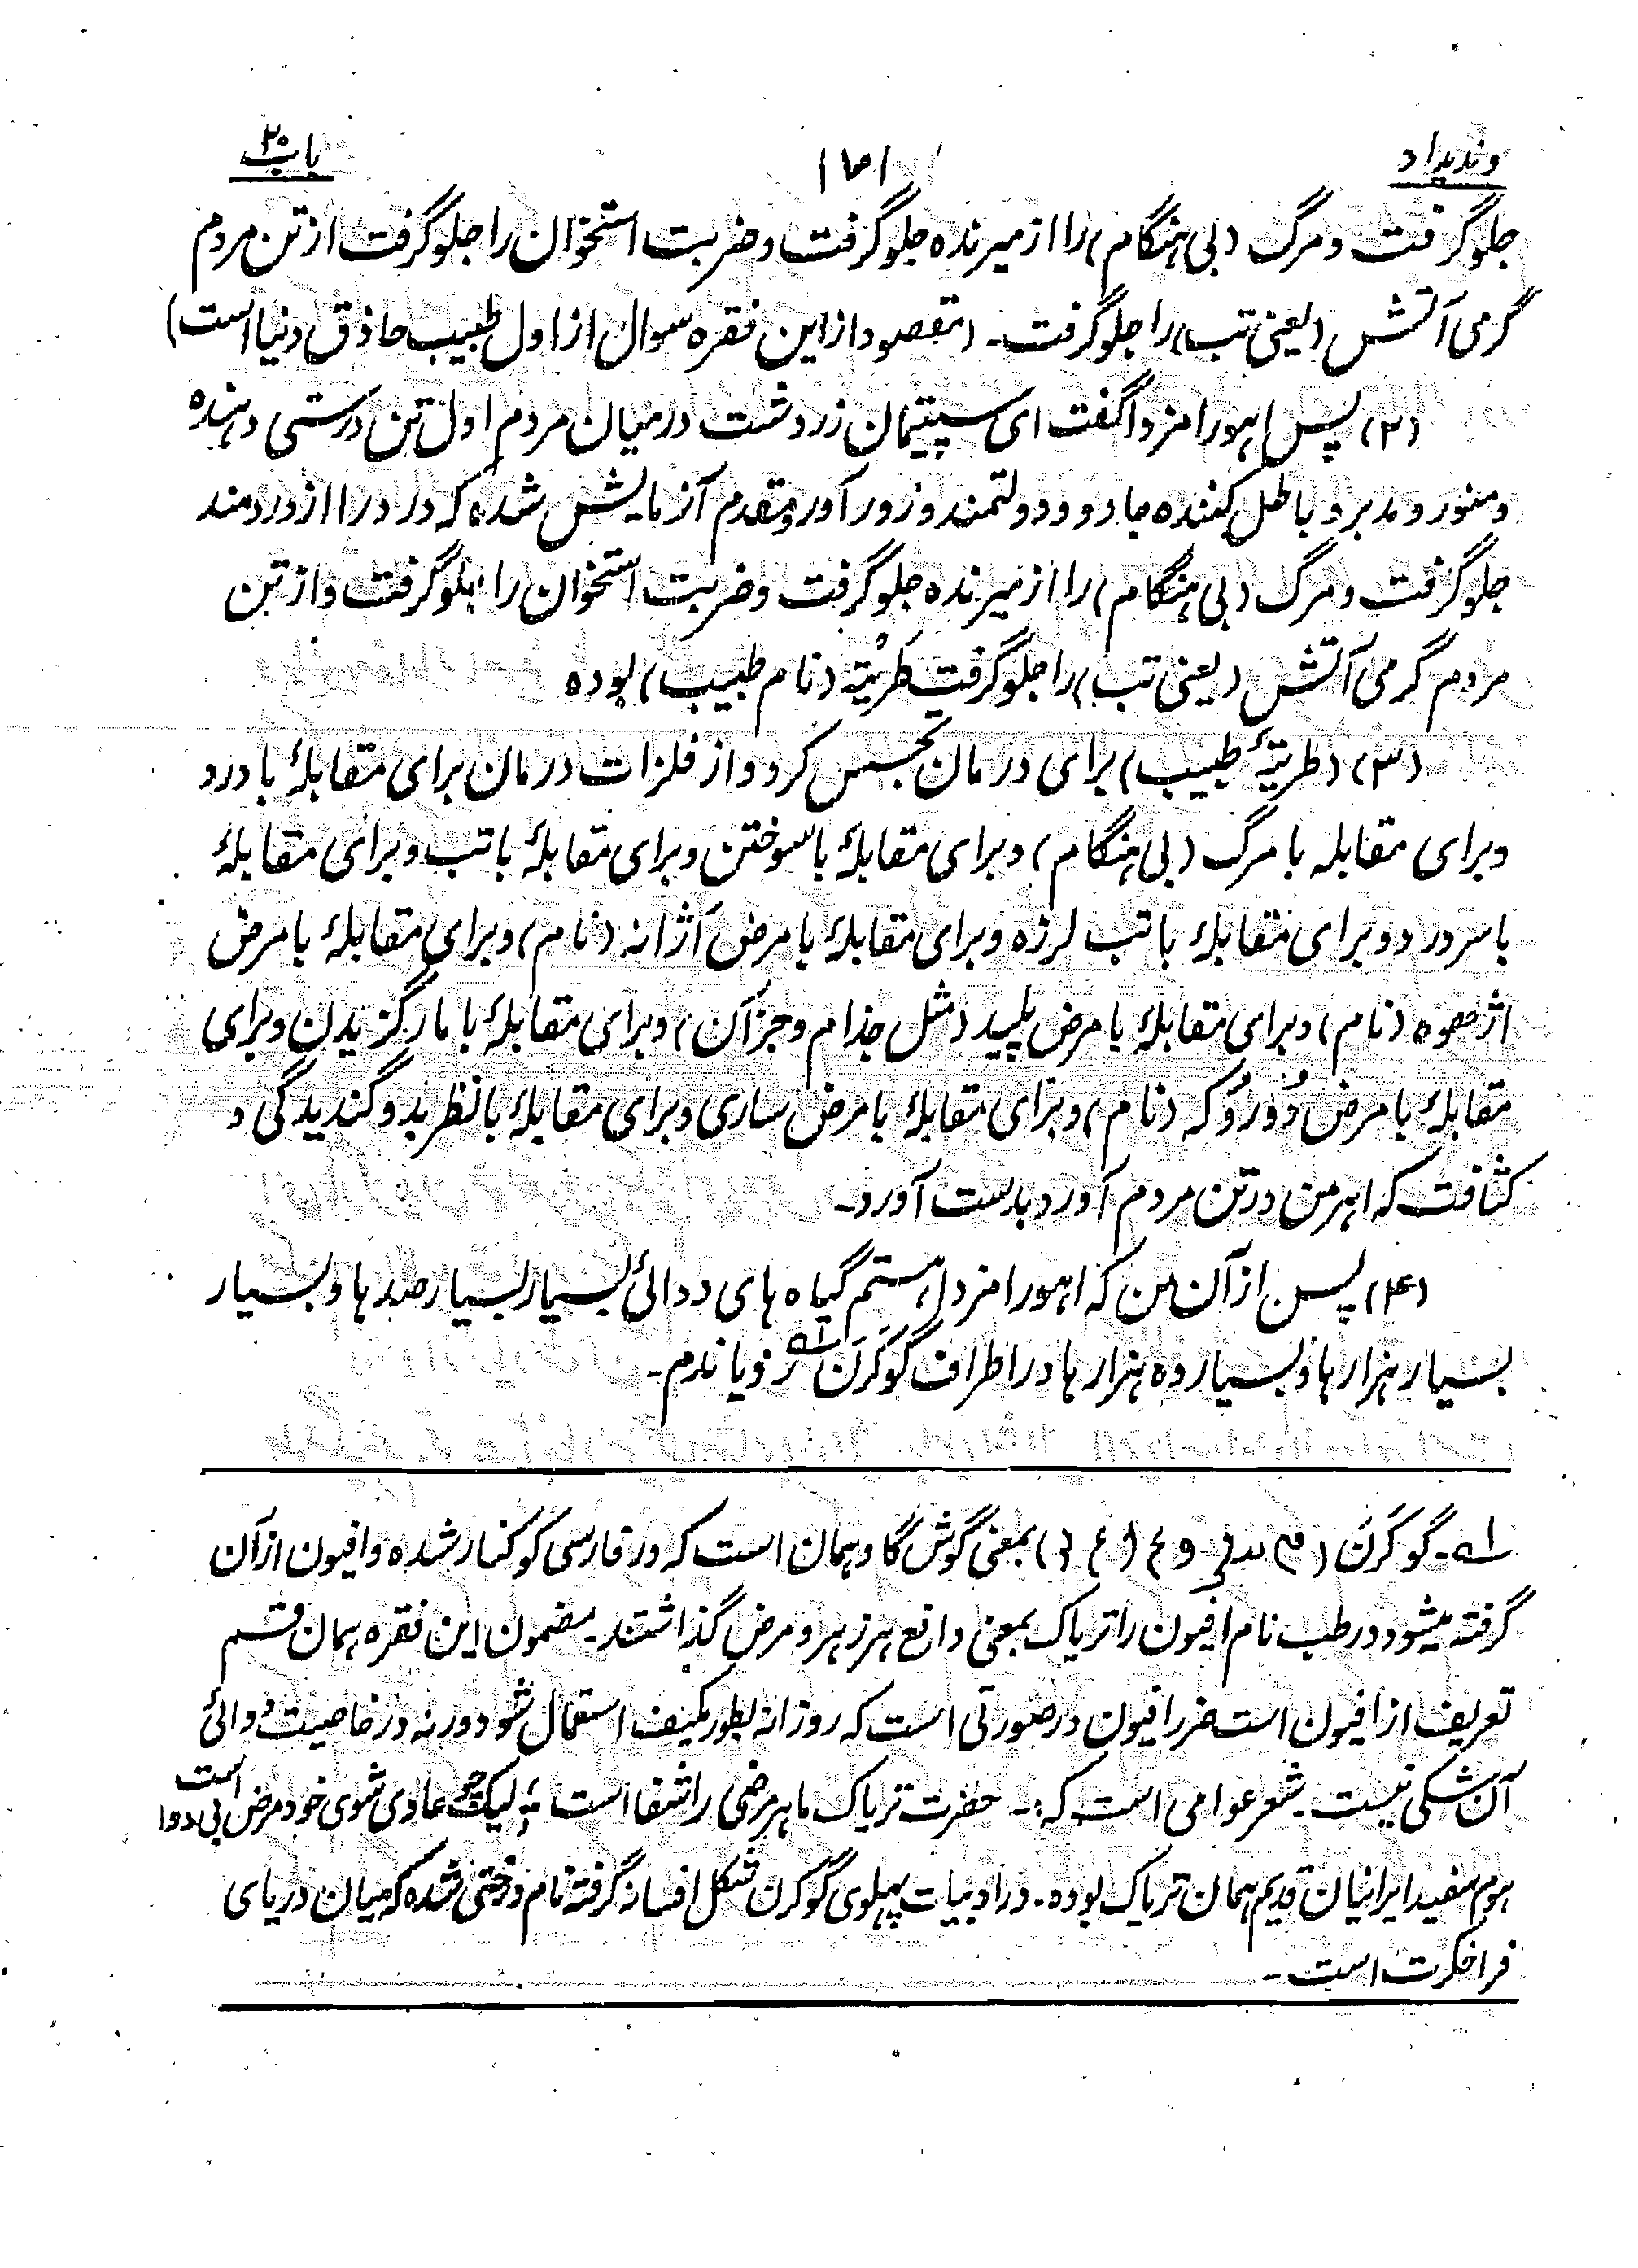 وندیداد ۱۷۱ باب ۲۰
جلوگرفت و مرگ (بی هنگام) را از میرنده جلوگرفت و ضربت استخوان را جلوگرفت از تن مردم
گرمی آتش (یعنی تب) را جلوگرفت ـ (مقصود از این فقره سوال از اول طبیب حاذق دنیا است)
(۲) پس اهورامزدا گفت ای سپیتمان زردشت در میان مردم اول تن درستی دهنده
و منور و مدبر و باطل کننده جادو و دولتمند و زورآور و مقدم آزمایش شده که درد را از دردمند
جلوگرفت و مرگ (بی هنگام) را از میرنده جلوگرفت و ضربت استخوان را جلوگرفت و از تن
مردم گرمی آتش (یعنی تب) را جلوگرفت طریته (نام طبیب) بوده
(۳) (طریتهٔ طبیب) برای درمان تجسس کرد و از فلزات درمان برای مقابلهٔ با درد
و برای مقابله با مرگ (بی هنگام) و برای مقابلهٔ با سوختن و برای مقابلهٔ با تب و برای مقابلهٔ
با سردرد و برای مقابلهٔ با تب لرزه و برای مقابلهٔ با مرض اَژانه (نام) و برای مقابلهٔ با مرض
اژهوه (نام) و برای مقابلهٔ با مرض پلید (مثل جذام و جز آن) و برای مقابلهٔ با مار گزیدن و برای
مقابلهٔ با مرض دُوروُکه (نام) و برای مقابلهٔ با مرض ساری و برای مقابلهٔ با نظر بد و گندیدگی و
کثافت که اهرمن در تن مردم آورد بدست آورد ـ
(۴) پس از آن من که اهورامزدا هستم گیاه های دوائی بسیار بسیار صدها و بسیار
بسیار هزارها و بسیار ده هزارها در اطراف گوکَرَن ۵۱ رویاندم ـ
۵۱ ـ گوکَرَن () بمعنی گوش گاو همان است که در فارسی کوکنار شده و افیون از آن
گرفته میشود در طب نام افیون را تریاک بمعنی دافع هر زهر و مرض گذاشتند ـ مضمون این فقره همان قسم
تعریف از افیون است ضرر افیون در صورتی است که روزانه بطور مکیف استعمال شود ورنه در خاصیت دوائی
آن شکی نیست ـ شعر عوامی است که: ـ حضرت تریاک ما هر مرضی را شفا است ؛ لیک چو عادی شوی خود مرض بی دوا است
هوم سفید ایرانیان قدیم همان تریاک بوده ـ در ادبیات پهلوی گوکرن شکل افسانه گرفته نام درختی شده که میان دریای
فراخکرت است ـ